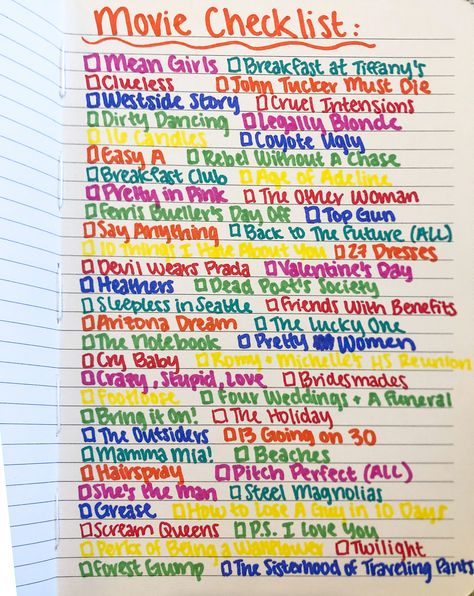 Movie Checklist:
Mean Girls Breakfast at Tiffany's
Clueless John Tucker Must Die
Westside Story Cruel Intensions
Dirty Dancing Legally Blonde
16 Candles Coyote Ugly
Easy A Rebel Without A Chase
Breakfast Club Age of Adeline
Pretty in Pink The Other Woman
Ferris Bueller's Day Off Top Gun
Say Anything Back to The Future (ALL)
10 Things I Hate About You 27 Dresses
Devil Wears Prada Valentine's Day
Heathers Dead Poet's Society
Sleepless in Seattle Friends With Benefits
Arizona Dream The Lucky One
The Notebook Pretty Women
Cry Baby Romy + Michelle's HS Reunion
Crazy, Stupid, Love Bridesmades
Footloose Four Weddings + A Funeral
Bring it On! The Holiday
The Outsiders 13 Going on 30
Mamma Mia! Beaches
Hairspray Pitch Perfect (ALL)
She's the Man Steel Magnolias
Grease How to Lose A Guy in 10 Days
Scream Queens P.S. I Love You
Perks of Being a Wallflower Twilight
Forest Gump The Sisterhood of Traveling Pants